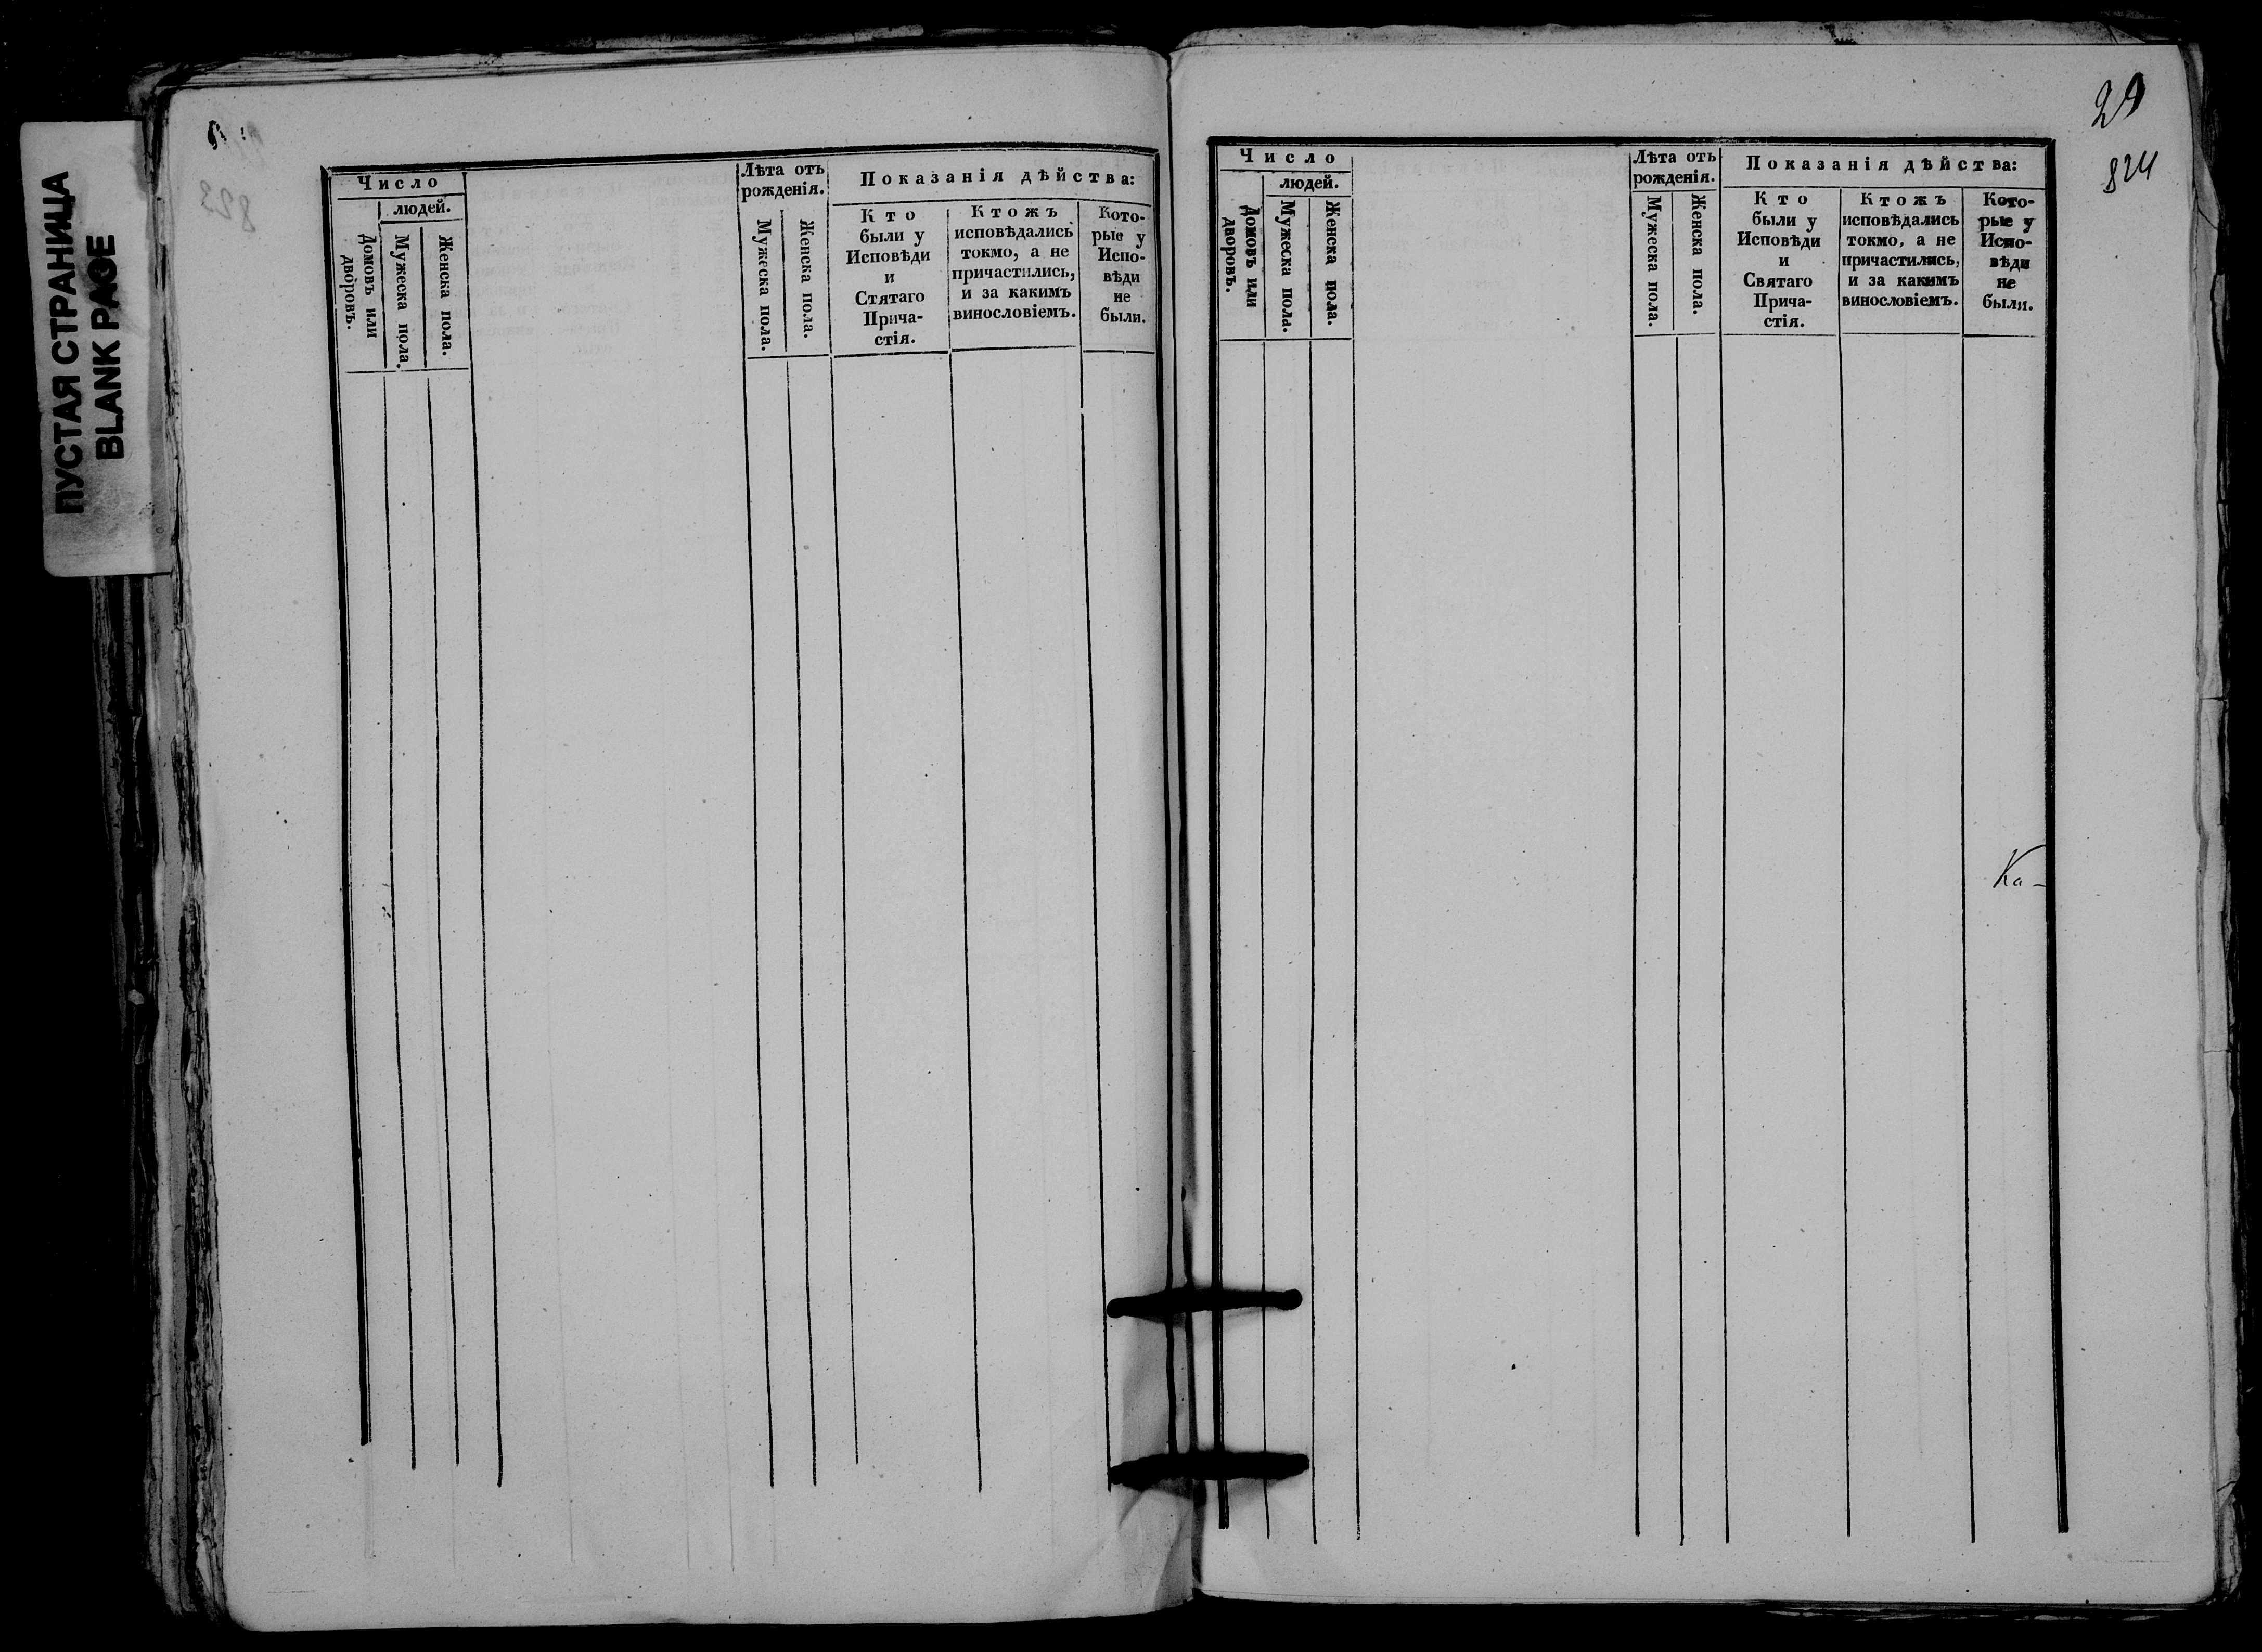 ПУСТАЯ СТРАНИЦА
BLANK PAGE
Число
людей.
Домовъ или дворовъ.
Мужеска пола.
Женска пола.
Лѣта отъ
рожденія.
Мужеска пола.
Женска пола.
Показанія дѣйства:
Кто
были у
Исповѣди
и
Стятаго
Прича-
стія.
Ктожъ
исповѣдались
токмо, а не
причастились,
и за какимъ
винословіемъ.
Кото-
рые у
Испо-
вѣди
не
были.
29
824
Число
людей.
Домовъ или дворовъ.
Мужеска пола.
Женска пола.
Лѣта отъ
рожденія.
Мужеска пола.
Женска пола.
Показанія дѣйства:
Кто
были у
Исповѣди
и
Святаго
Прича-
стія.
Ктожъ
исповѣдались
токмо, а не
причастились,
и за какимъ
винословіемъ.
Кото-
рые у
Испо-
вѣди
не
были.
Ка-